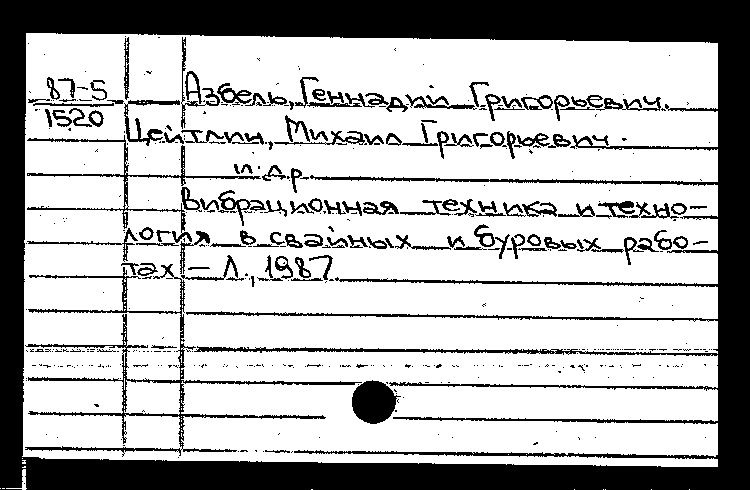 87-5 Азбель, Геннадий Григорьевич.
1520 Цейтлин, Михаил Григорьевич.
и др.
Вибрационная техника и техно-
логия в свайных и буровых рабо-
тах – Л., 1987